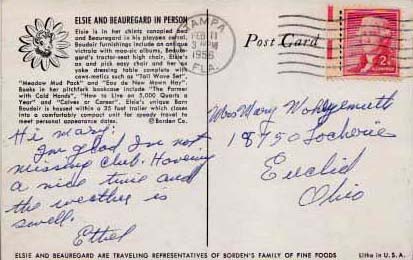 ELSIE AND BEAUREGARD IN PERSON
Elsie is in her chintz canopied bed
and Beauregard in his playpen corral.
Boudoir furnishings include an antique
victrola with moo-sic albums, Beaure-
gard's tractor-seat high chair, Elsie's
ox and pick easy chair and her va-
nese dressing table complete with
cows-metics such as "Tail Wave Set"
"Meadow Mud Pack" and "Eau de New Mown Hay".
Books in her pitchfork bookcase include "The Farmer
with Cold Hands", "How to Live on 5,000 Quarts a
Year" and "Calves or Career". Elsie's unique Barn
Boudoir is housed within a 35 foot trailer which closes
into a comfortably compact unit for speedy travel to
meet personal appearance dates.
© Borden Co.
Hi Mary:
I'm glad I'm not
missing club. Having
a nice time and
the weather is
swell.
Ethel
TAMPA
FEB 11
3 PM
1956
FLA.
Post Card
2¢
Mrs Mary Wohlgemuth
18750 Locherie
Euclid
Ohio
ELSIE AND BEAUREGARD ARE TRAVELING REPRESENTATIVES OF BORDEN'S FAMILY OF FINE FOODS
Litho in U.S.A.